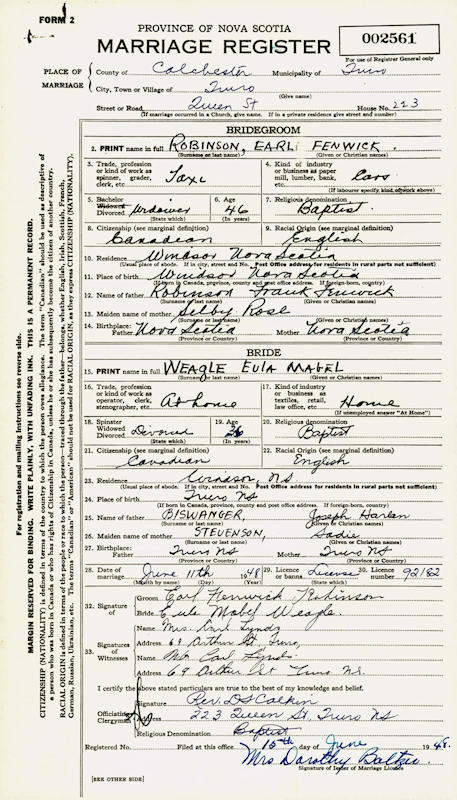 FORM 2
PROVINCE OF NOVA SCOTIA
MARRIAGE REGISTER
002561
For use of Registrar General only
PLACE OF MARRIAGE
County of Colchester Municipality of Truro
City, Town or Village of Truro
(Give name)
Street or Road Queen St House No. 223
(If marriage occurred in a Church, give name. If in a private residence give street and number)
BRIDEGROOM
2. PRINT name in full ROBINSON, EARL FENWICK.
(Surname or last name) (Given or Christian names)
3. Trade, profession or kind of work as spinner, grader, clerk, etc. Taxi
4. Kind of industry or business as paper mill, lumber, bank, etc. Cars
(If labourer specify, kind of work above)
5. Bachelor Widowed Divorced Widower
(State which)
6. Age 46
(Years)
7. Religious denomination Baptist
8. Citizenship (see marginal definition) Canadian
9. Racial Origin (see marginal definition) English
10. Residence Windsor Nova Scotia
(Usual place of abode. If in city, street and No. Post Office address for residents in rural parts not sufficient)
11. Place of birth Windsor Nova Scotia
(If born in Canada, province, county and post office address. If foreign-born, country)
12. Name of father Robinson Frank Fenwick
(Surname or last name) (Given or Christian names)
13. Maiden name of mother Selby Rose
(Surname or last name) (Given or Christian names)
14. Birthplace: Father Nova Scotia Mother Nova Scotia
(Province or Country) (Province or Country)
BRIDE
15. PRINT name in full WEAGLE EULA MABEL
(Surname or last name) (Given or Christian names)
16. Trade, profession or kind of work as operator, clerk, stenographer, etc. At home
17. Kind of industry or business as textiles, retail, law office, etc. Home
(If unemployed answer "At Home")
18. Spinster Widowed Divorced Divorced
(State which)
19. Age
(Years)
20. Religious denomination Baptist
21. Citizenship (see marginal definition) Canadian
22. Racial Origin (see marginal definition) English
23. Residence Windsor, NS
(Usual place of abode. If in city, street and No. Post Office address for residents in rural parts not sufficient)
24. Place of birth Truro NS
(If born in Canada, province, county and post office address. If foreign-born, country)
25. Name of father BISWANGER, Joseph Harlan
(Surname or last name) (Given or Christian names)
26. Maiden name of mother STEVENSON, Sadie
(Surname or last name) (Given or Christian names)
27. Birthplace: Father Truro NS Mother Truro NS
(Province or Country) (Province or Country)
28. Date of marriage June 11th 1948
(Month by name) (Day) (Year)
29. Licence or banns License
(State which)
30. Licence number 92182
32. Signature of
Groom Earl Fenwick Robinson
Bride Eula Mabel Weagle
33. Signature of Witnesses
Name Mrs. Earl Lynds
Address 69 Arthur St. Truro,
Name Mr. Earl Lynds
Address 69 Arthur St Truro NS.
I certify the above stated particulars are true to the best of my knowledge and belief.
Officiating Clergyman
Signature Rev. D S Calkin
Address 223 Queen St. Truro NS
Religious Denomination Baptist
Registered No. Filed at this office 15th day of June 1948.
Mrs Dorothy
Signature of Issuer of Marriage Licence
[SEE OTHER SIDE]
For registration and mailing instructions see reverse side.
MARGIN RESERVED FOR BINDING. WRITE PLAINLY, WITH UNFADING INK. THIS IS A PERMANENT RECORD.
CITIZENSHIP (NATIONALITY) is defined in terms of the country to which the person owes allegiance. The term "Canadian" should be used as descriptive of
a person who was born in Canada or who has rights of Citizenship in Canada, unless he or she has subsequently become the citizen of another country.
RACIAL ORIGIN is defined in terms of the people or race to which the person—traced through the father—belongs, whether English, Irish, Scottish, French,
German, Russian, Ukrainian, etc. The terms "Canadian" or "American" should not be used for RACIAL ORIGIN, as they express CITIZENSHIP (NATIONALITY).